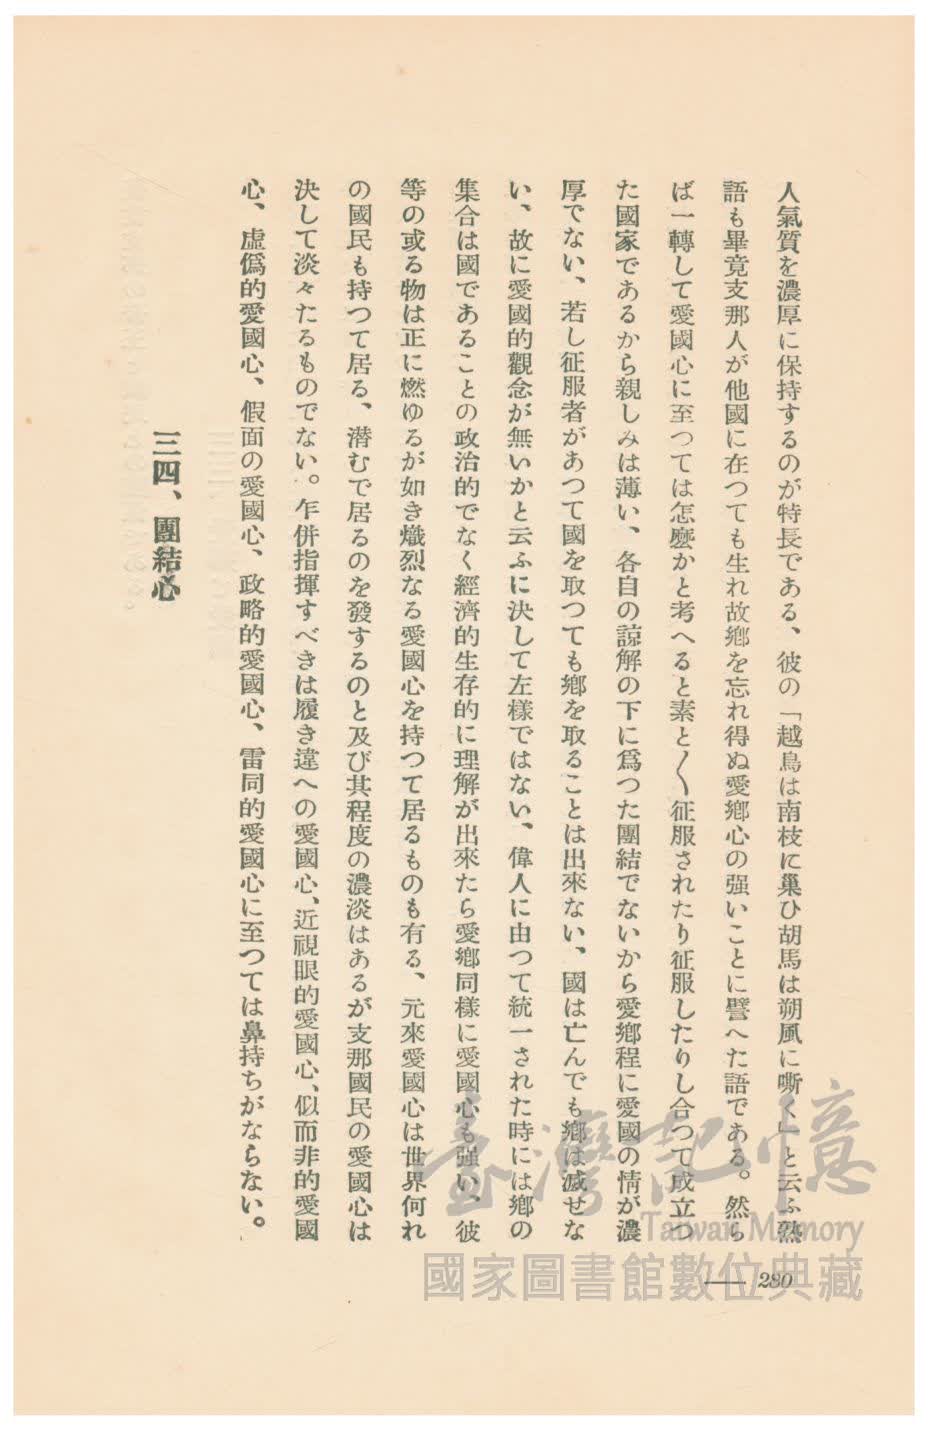 人氣質を濃厚に保持するのが特長である、彼の「越鳥は南枝に巢ひ胡馬は朔風に嘶く」と云ふ熟
語も畢竟支那人が他國に在つても生れ故鄕を忘れ得ぬ愛鄕心の强いことに譬へた語である。然ら
ば一轉して愛國心に至つては怎麽かと考へると素と〳〵征服されたり征服したりし合つて成立つ
た國家であるから親しみは薄い、各自の諒解の下に爲つた團結でないから愛鄕程に愛國の情が濃
厚でない、若し征服者があつて國を取つても鄕を取ることは出來ない、國は亡んでも鄕は滅せな
い、故に愛國的觀念が無いかと云ふに決して左樣ではない、偉人に由つて統一された時には鄕の
集合は國であることの政治的でなく經濟的生存的に理解が出來たら愛鄕同樣に愛國心も强い、彼
等の或る物は正に燃ゆるが如き熾烈なる愛國心を持つて居るものも有る、元來愛國心は世界何れ
の國民も持つて居る、潜むで居るのを發するのと及び其程度の濃淡はあるが支那國民の愛國心は
決して淡々たるものでない。乍併指揮すべきは履き違への愛國心、近視眼的愛國心、似而非的愛國
心、虛僞的愛國心、假面の愛國心、政略的愛國心、雷同的愛國心に至つては鼻持ちがならない。
三四、團結心
280
臺灣記憶
Taiwan Memory
國家圖書館數位典藏